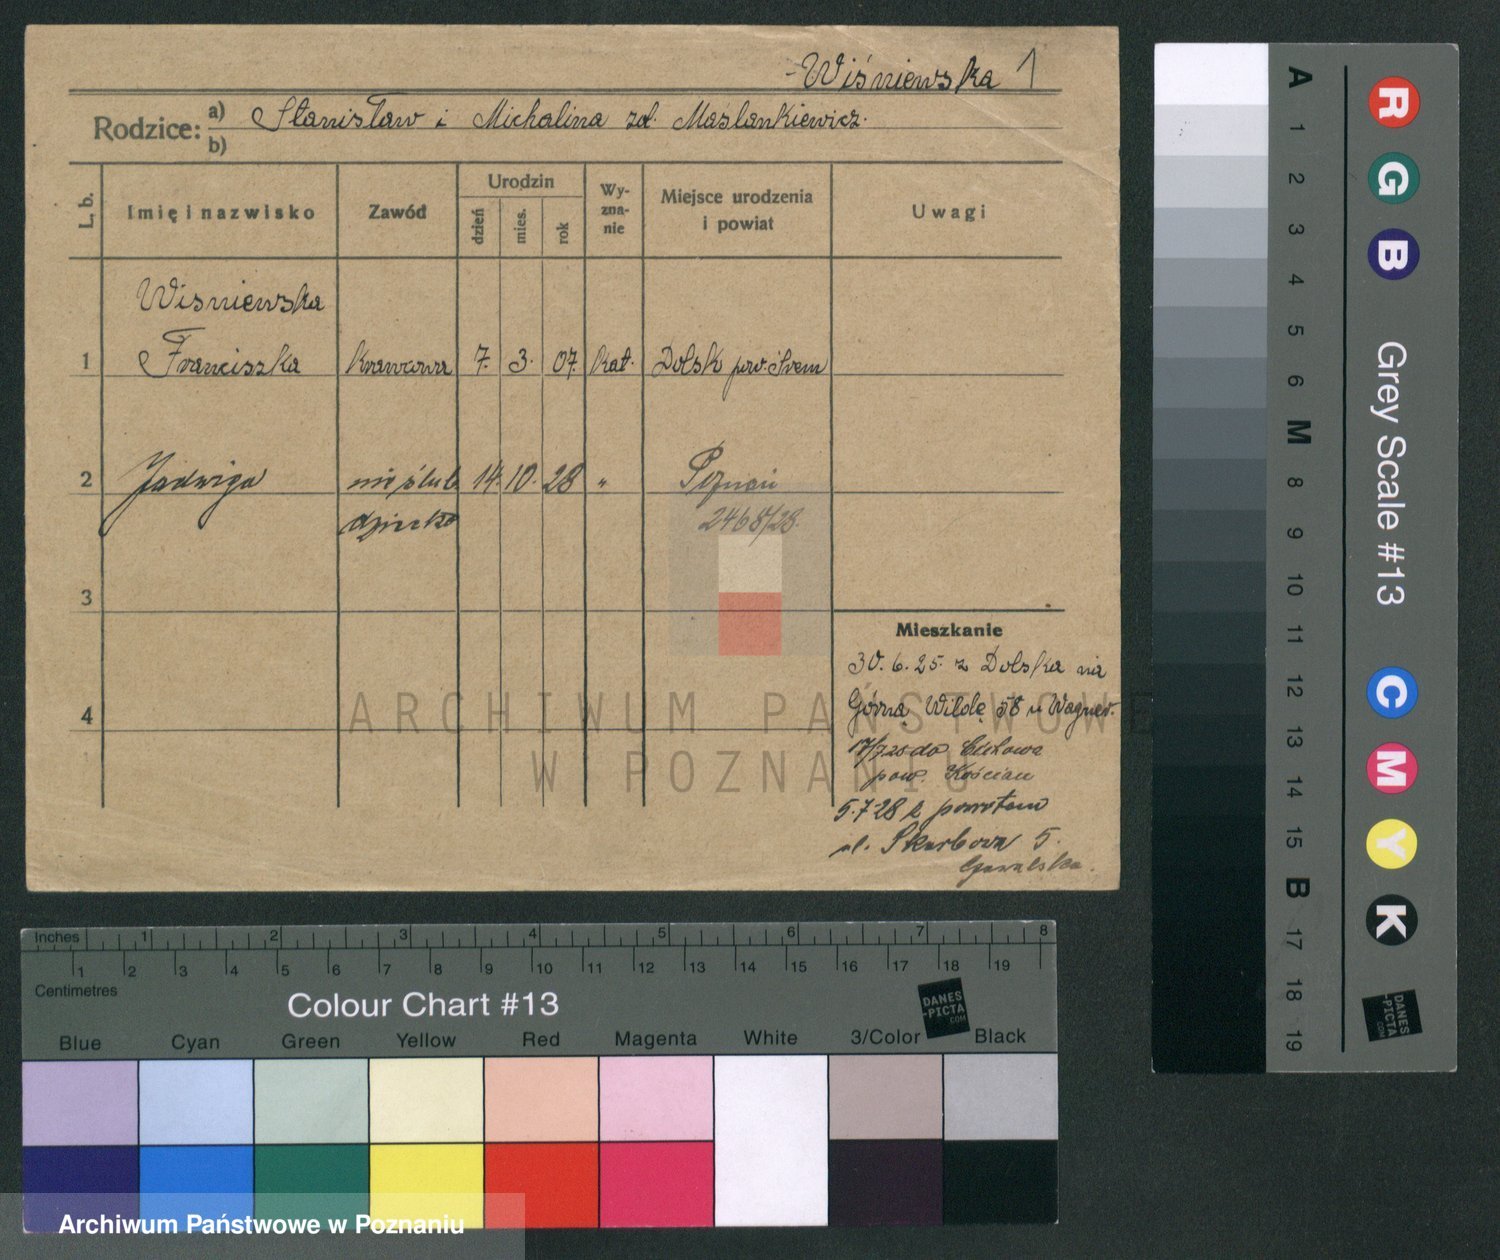 -Wiśniewska 1
Rodzice: a) Stanisław i Michalina zd. Maslankiewicz.
b)
L. b. Imię i nazwisko Zawód Urodzin dzień mies. rok Wyznanie Miejsce urodzenia i powiat Uwagi
Wisniewska
1 Franciszka krawcowa 7. 3. 07. kat. Dolsk pow. Śrem
2 Jadwiga nieślub. 14. 10. 28 " Poznań
dziecko 2468/28
3
4
Mieszkanie
30. 6. 25. z Dolska na
Górną Wildę 58 u Wagner.
17/7 25 do
pow. Kościan
5.7.28 z powrotem
ul. Skarbowa 5.
ARCHIWUM PAŃSTWOWE
W POZNANIU
Inches 1 2 3 4 5 6 7 8
1 2 3 4 5 6 7 8 9 10 11 12 13 14 15 16 17 18 19
Centimetres
Colour Chart #13
DANES
-PICTA
.COM
Blue Cyan Green Yellow Red Magenta White 3/Color Black
Archiwum Państwowe w Poznaniu
A 1 2 3 4 5 6 M 8 9 10 11 12 13 14 15 B 17 18 19
R G B
Grey Scale #13
C M Y K
DANES
-PICTA
.COM